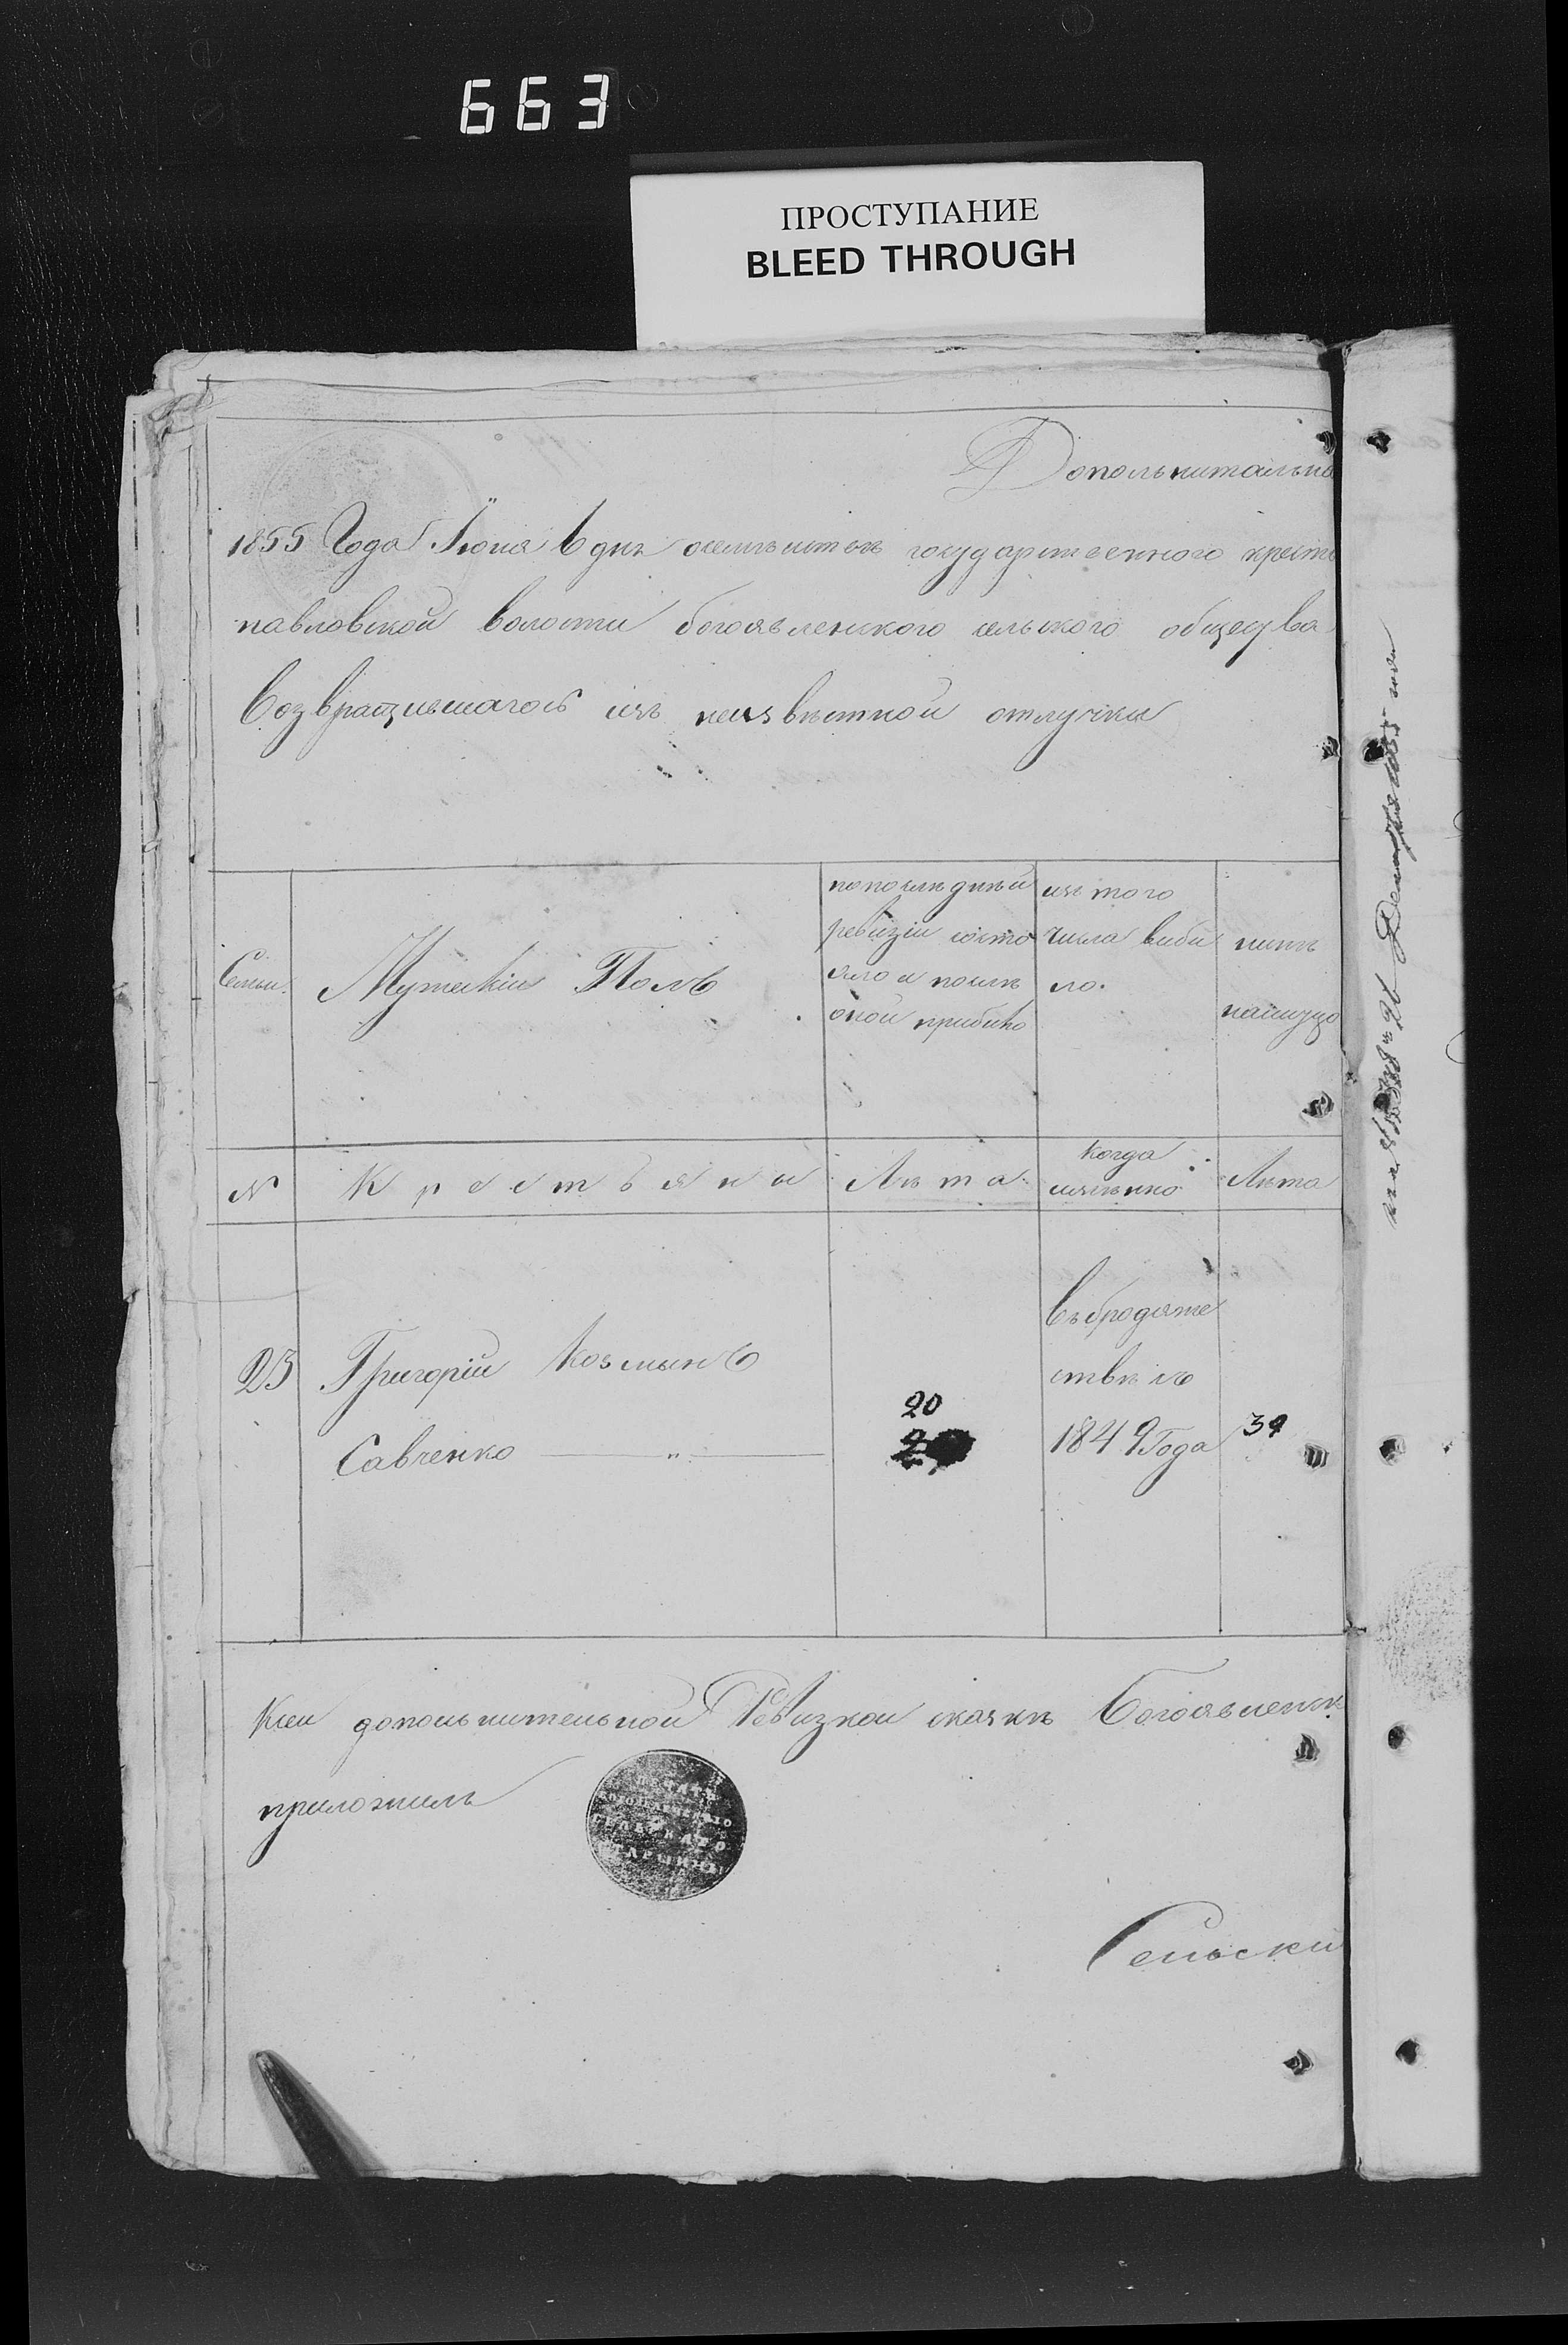 663
ПРОСТУПАНИЕ
BLEED THROUGH
Дополнительна
1855 Года Июня 6 дня государственного крестя
павловской волости богоявленского сельского общества
возвратившагось изъ неизвѣстной отлучки
Семьи. Мужескій Полъ
попослѣдней ревизіи состо яло и послѣ оной прибыло
изъ того числа выбы ло.
нынѣ налицо
№ Крестьяны Лѣта когда именно Лѣта
23 Григорій Козминъ
Савченко "
20
въ бродяже ствѣ съ 1849 Года
39
Ксеи дополнительной Ревизкои сказкѣ Богоявленск
приложилъ
ПЕЧАТЬ
Сельски